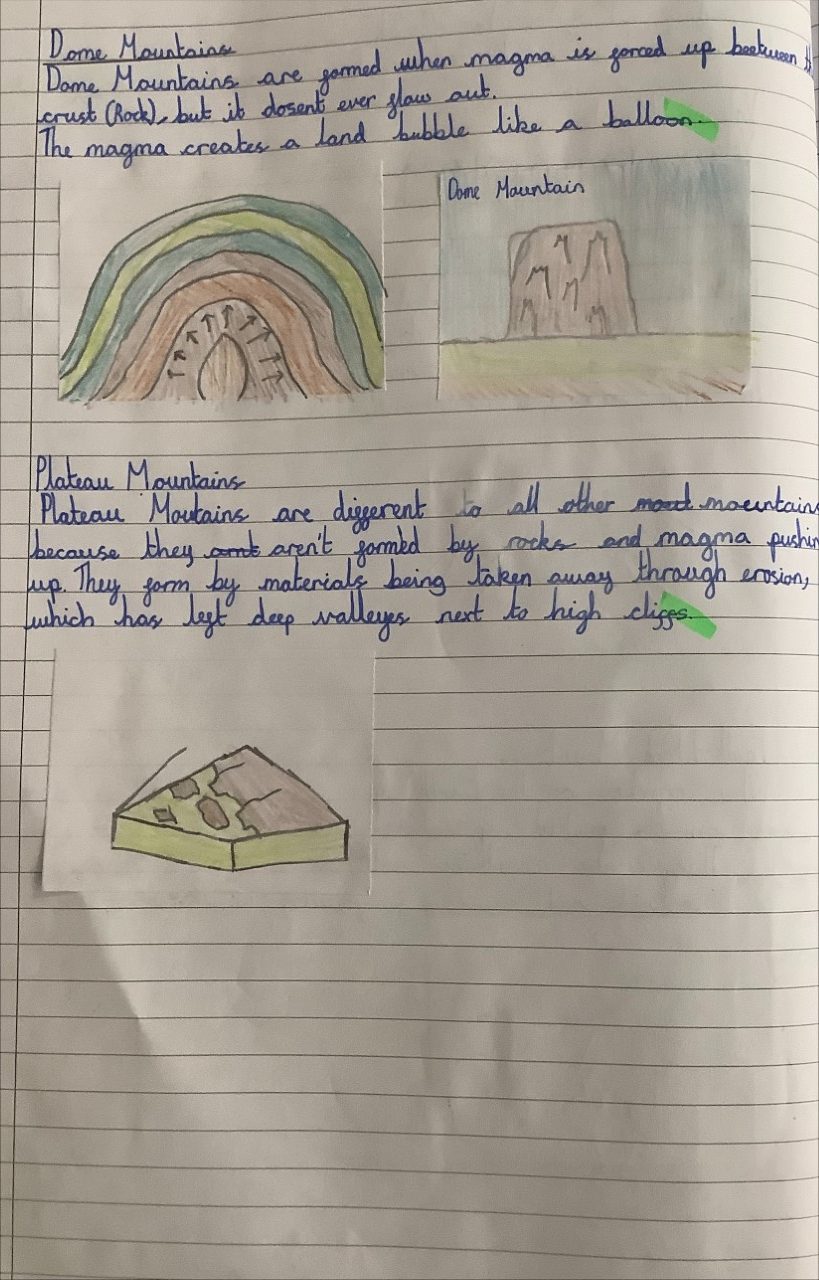 Dome Mountains
Dome Mountains are formed when magma is forced up beetween
crust (Rock), but it dosent ever flow out.
The magma creates a land bubble like a balloon.
Dome Mountain
Plateau Mountains
Plateau Moutains are different to all other mount mountains
because they arnt aren't formed by rocks and magma pushin
up. They form by materials being taken away through erosion,
which has left deep valleyes next to high cliffs.